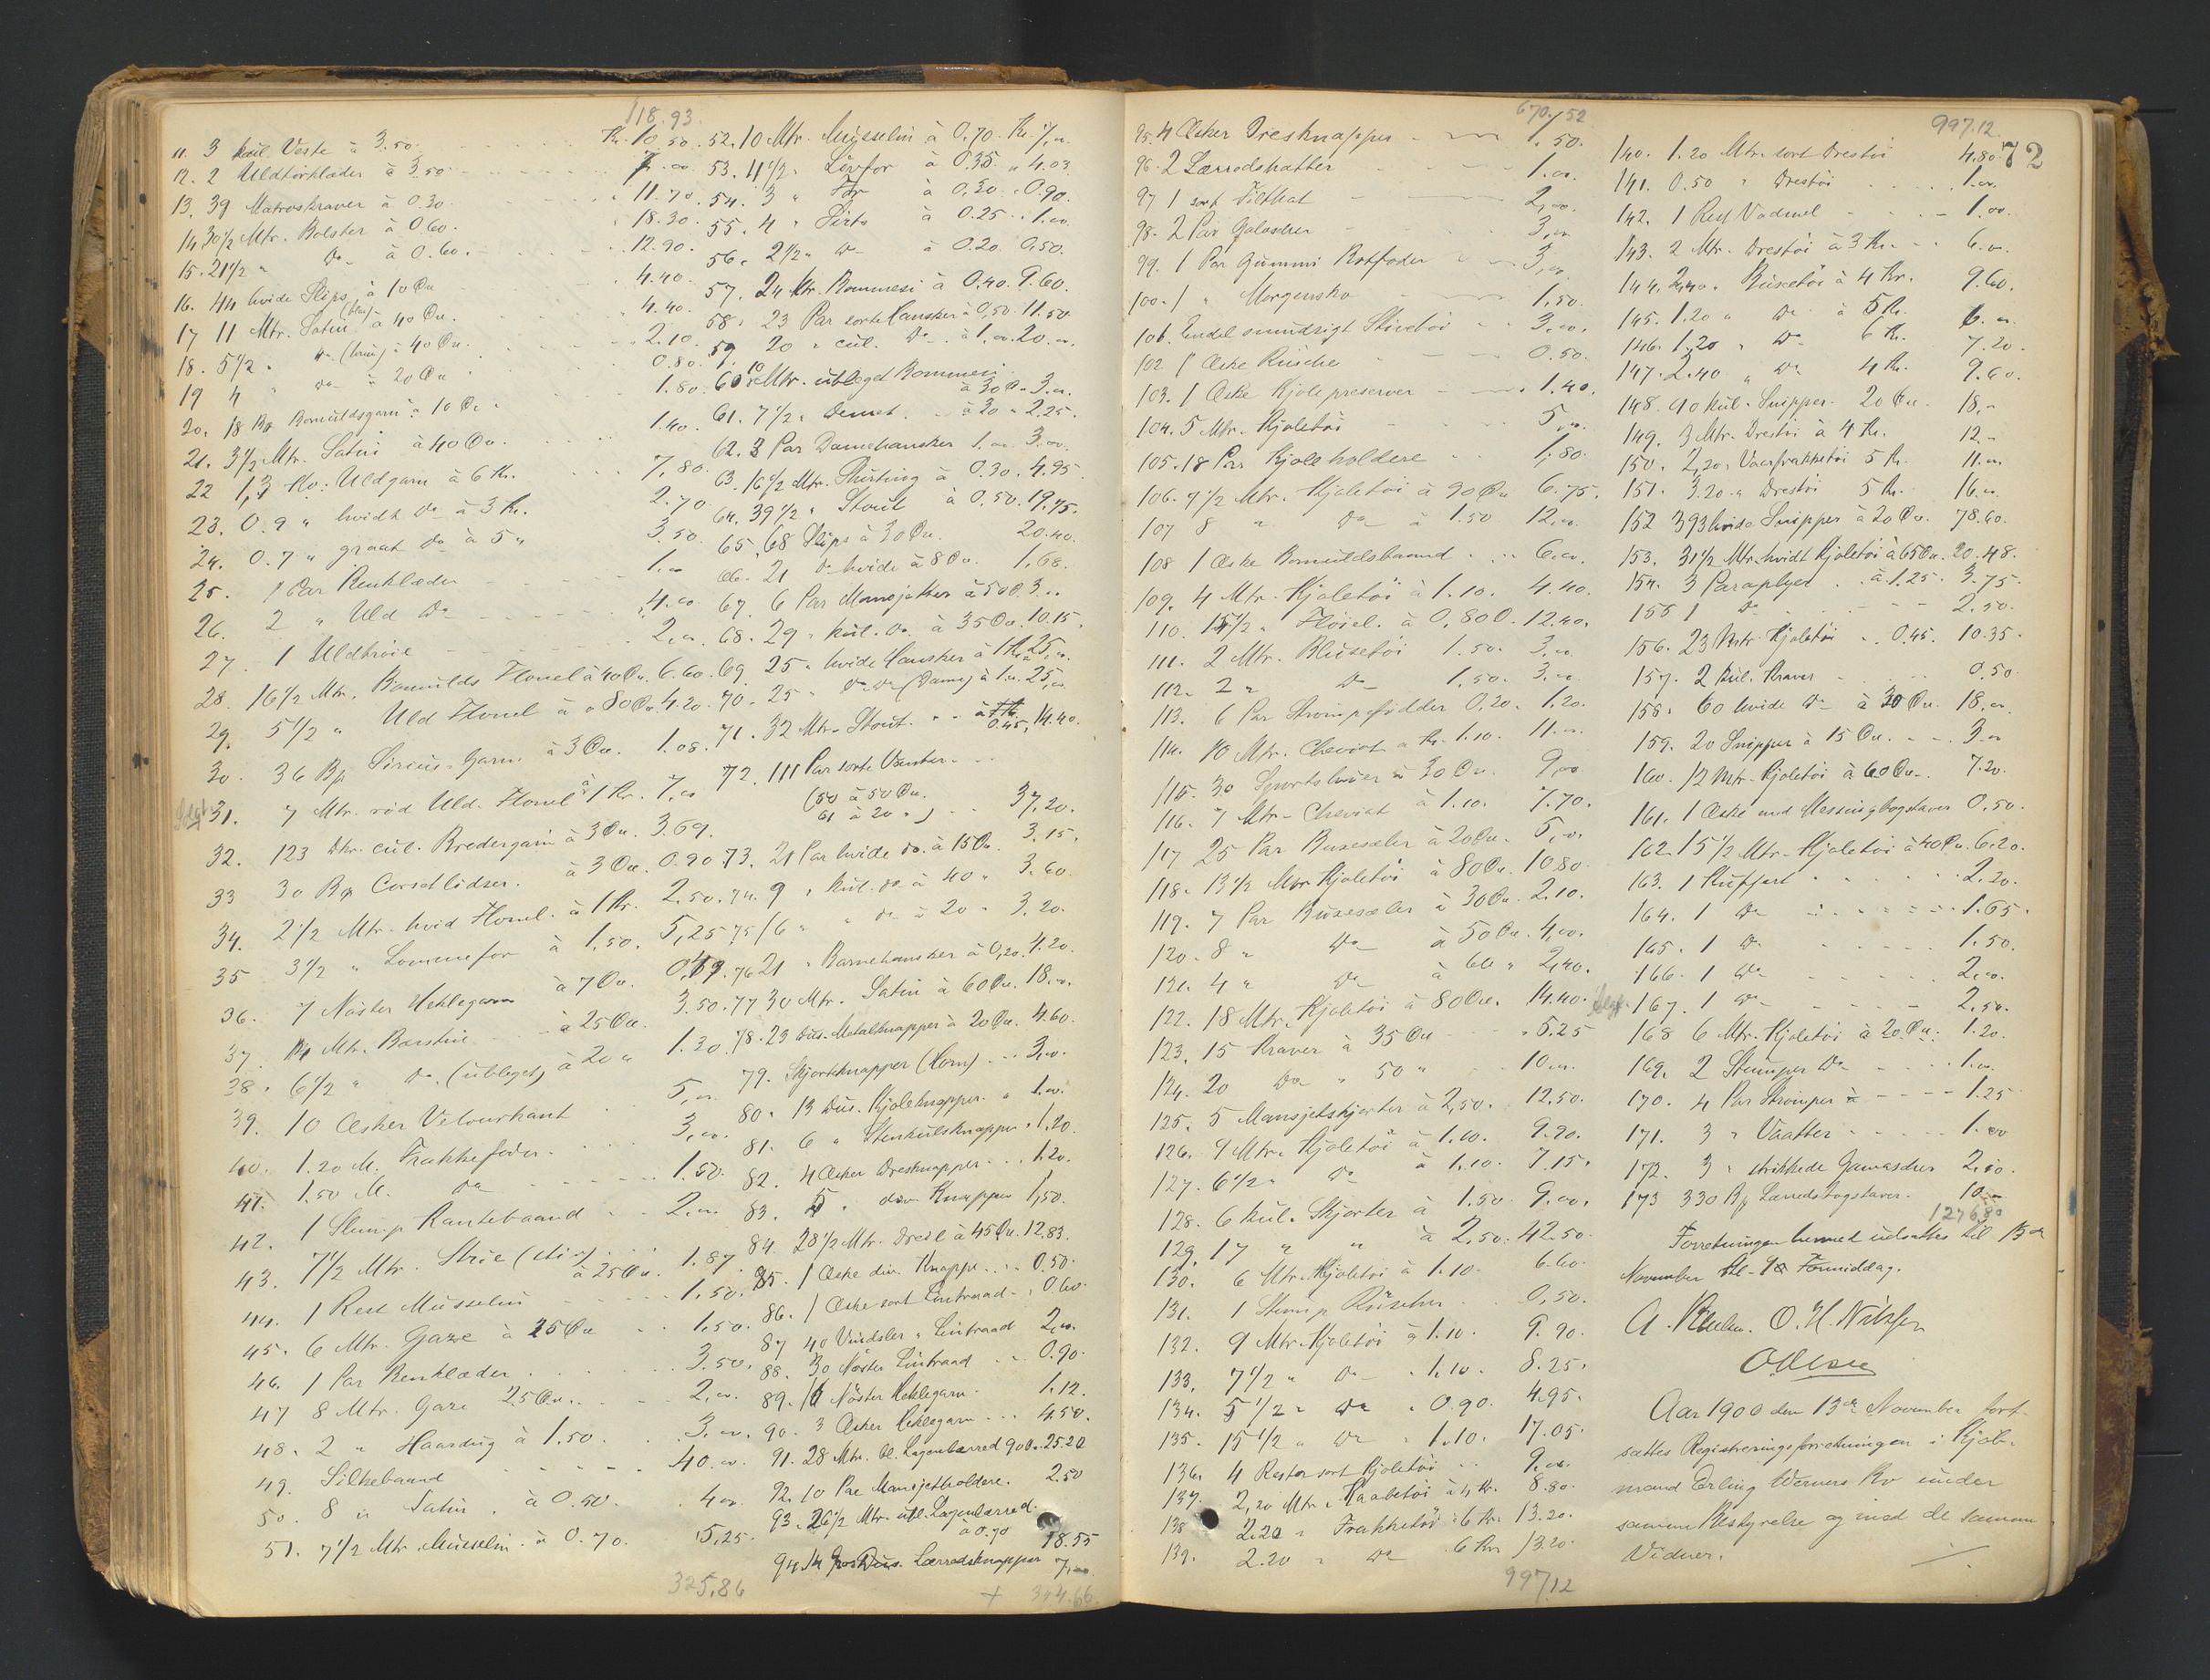 118.93.
11. 3 kul. Veste à 3.50. Kr. 10.50.
12. 2 Uldtørklæder à 3.50 7.00
13. 39 Matroskraver à 0.30. 11.70.
14 30 1/2 Mtr. Bolster à 0.60. 18.30.
15. 21 1/2 " Do à 0.60. 12.90.
16. 44 hvide Slips à 10 Øre 4.40.
17 11 Mtr. Satin (blaa) à 40 Øre. 4.40.
18. 5 1/2 " Do (brun) à 40 Øre. 2.10.
19 4 " do à 20 Øre 0.80.
20. 18 Bg Bomuldsgarn à 10 Øre 1.80.
21. 3 1/2 Mtr. Satin à 40 Øre. 1.40.
22 1,3 Ko: Uldgarn à 6 Kr. 7.80.
23. 0.9 " hvidt Do à 3 Kr. 2.70
24. 0.7 " graat do à 5 " 3.50.
25. 1 Par Benklæder 1.00
26. 2 " Uld Do 4.00
27. 1 Uldtrøie 2.00
28. 16 1/2 Mtr. Bomulds Flonel à 40 Øre. 6.60.
29. 5 1/2 " Uld Flonel à 80 Øre 4.20.
30. 36 Bg Sirius-Garn à 3 Øre. 1.08.
Solgt 31. 7 Mtr. rød Uld. Flonel à 1 Kr. 7.00
32. 123 Dkr. cul. Brodergarn à 3 Øre. 3.69.
33 30 Bg Corsetlidser. à 3 Øre. 0.90
34. 2 1/2 Mtr. hvid Flonel. à 1 Kr. 2.50.
35 3 1/2 " Lommefor à 1.50. 5.25
36. 7 Nøster Heklegarn à 7 Øre. 0.49.
37. 14 Mtr. Barstue à 25 Øre. 3.50.
38. 6 1/2 " do. (ubleget) à 20 " 1.30.
39. 10 Æsker Velourkant 5.00
40. 1.20 M. Frakkefoder. 3.00.
41. 1.50 M. do 1.50.
42. 1 Stump Kantebaand 2.00
43. 7 1/2 Mtr. Strie (stiv) à 25 Øre. 1.87.
44. 1 Rest Musselin 1.50.
45. 6 Mtr. Gaze à 25 Øre 1.50.
46. 1 Par Benklæder 3.50.
47 8 Mtr. Gaze 25 Øre. 2.00.
48. 2 " Haardug à 1.50. 3.00.
49. Silkebaand 40.00.
50. 8 m Satin. à 0.50. 4.00
51. 7 1/2 Mtr. Musselin. à 0.70. 5.25.
325,86
52. 10 Mtr. Musselin à 0.70. Kr. 7.00.
53. 11 1/2 " Livfor à 0.35. " 4.03.
54. 3 " For à 0.30. 0.90.
55. 4 " Sirts à 0.25. 1.00.
56. 2 1/2 " do à 0.20. 0.50.
57. 24 Mtr. Bommesi à 0.40. 9.60.
58. 23 Par sorte Hansker à 0.50. 11.50
59 20 " cul. Do. à 1.00. 20.00.
60. 10 Mtr. ubleget Bommesi à 30 Ø. 3.00.
61. 7 1/2 " Demet. à 30 " 2.25.
62. 3 Par Damehansker 1.00 3.00.
63. 16 1/2 Mtr. Shirting à 0.30. 4.95
64. 39 1/2 " Stout à 0.50. 19.75.
65. 68 Slips à 30 Øre. 20.40.
66. 21 do hvide à 8 Øre. 1.68.
67. 6 Par Mansjetter à 50 Ø. 3.00
68. 29 " kul. do. à 35 Øre. 10.15.
69. 25 " hvide Hansker à 1 Kr. 25.00.
70. 25 " do do (Dame) à 1.00. 25.00
71. 32 Mtr. Stout. à 0.45. 14.40.
72. 111 Par sorte Vanter.
(50 à 50 Øre.
61 à 20 " ) 37.20.
73. 21 Par hvide do. à 15 Ø. 3.15.
74. 9 " kul. do à 40 " 3.60.
75 16 " " do à 20 " 3.20.
76 21 " Barnehansker à 0,20. 4.20.
77 30 Mtr. Satin à 60 Øre. 18.00.
78. 23 Dus. Metalknapper à 20 Øre. 4.60.
79. Skjorteknapper (Horn) 3.00.
80. 13 Dus. Kjoleknapper. 1.00.
81. 6 " Stenkulsknapper 1.20.
82. 4 Æsker Dresknapper 1.20.
83. 5 " div. Knapper 1.50.
84. 28 1/2 Mtr. Dreil à 45 Øre. 12.83.
85. 1 Æske div. Knapper 0.50.
86. 1 Æske sort Lintraad 0.60.
87 40 Vindsler " Lintraad 2.00.
88. 30 Nøster Lintraad 0.90.
89. 16 Nøster Heklegarn. 1.12.
90. 3 Æsker Heklegarn 4.50.
91. 28 Mtr. bl. Lagenlærred 90 Ø. 25.20
92. 10 Par Mansjetholdere. 2.50
93. 26 1/2 Mtr. ubl. Lagenlærred.
à 0.70 18.55
94 14 Gros Dus. Lærredsknapper 7.00
+ 344.66
670.52
95. 4 Æsker Dresknapper 1.50.
96. 2 Lærredshatter 1.00.
97 1 sort Filthat 2.00.
98. 2 Par Galoscher 3.00
99. 1 Par Gummi Botfoder 3.00.
100. 1 " Morgensko 1.50.
106. Endel smudsigt Stivetøi 3.00.
102 1 Æske Rusche 0.50.
103. 1 Æske Kjolepreserver 1.40.
104. 5 Mtr. Kjoletøi 5.00.
105. 18 Par Kjoleholdere 1.80.
106. 7 1/2 Mtr. Kjoletøi à 90 Øre 6.75.
107 8 " do à 1.50 12.00.
108 1 Æske Bomuldsbaand 6.00.
109. 4 Mtr. Kjoletøi à 1.10. 4.40.
110. 15 1/2 " Fløiel. à 0,80 Ø. 12.40.
111. 2 Mtr. Blusetøi 1.50. 3.00
112. 2 " do 1.50. 3.00
113. 6 Par Strømpefødder 0,20. 1.20.
114. 10 Mtr. Cheviot à Kr. 1.10. 11.00.
115. 30 Sportshuer à 30 Øre. 9.00
116. 7 Mtr. Cheviot à 1.10. 7.70.
117 25 Par Buxeseler à 20 Øre. 5.00.
118. 13 1/2 Mtr Kjoletøi à 80 Øre. 10.80
119. 7 Par Buxeseler à 30 Øre. 2.10.
120. 8 " do à 50 Øre. 4.00.
121. 4 " do à 60 " 2.40.
122. 18 Mtr. Kjoletøi à 80 Øre. 14.40.
123. 15 Kraver à 35 Øre 5.25
124. 20 do " 50 " 10.00.
125. 5 Mansjetskjorter à 2.50. 12.50.
126. 9 Mtr. Kjoletøi à 1.10. 9.90.
127. 6 1/2 " do à 1.10. 7.15.
128. 6 kul. Skjorter à 1.50. 9.00.
129. 17 " " à 2.50. 42.50.
130. 6 Mtr. Kjoletøi à 1.10. 6.60.
131. 1 Stump Ruscher 0.50.
132. 9 Mtr. Kjoletøi à 1.10. 9.90.
133. 7 1/2 " do 1.10. 8.25.
134. 5 1/2 " do " 0.90. 4.95.
135. 15 1/2 " do " 1.10. 17.05.
136. 4 Rester sort Kjoletøi 9.00.
137. 2,20 Mtr. Kaabetøi à 4 Kr. 8.80.
138 2.20 " Frakketøi 6 Kr. 13.20.
139. 2.20 " do 6 Kr 13.20.
997.12
997.12
72
140. 1.20 Mtr. sort Drestøi 4.80.
141. 0.50 " Drestøi 1.00.
142. 1 Rest Vadmel 1.00.
143. 2 Mtr. Drestøi à 3 Kr. 6.00.
144. 2,40 " Buxetøi à 4 Kr. 9.60.
145. 1.20 " do à 5 Kr. 6.00
146. 1.20 " do 6 Kr. 7.20.
147. 2.40 " do 4 Kr. 9.60.
148. 90 kul. Snipper. 20 Øre. 18.-
149. 3 Mtr. Drestøi à 4 Kr. 12.-
150. 2,20 " Vaarfrakketøi 5 Kr. 11.00
151. 3.20 " Drestøi 5 Kr. 16.00
152 393 hvide Snipper à 20 Øre. 78.60.
153. 31 1/2 Mtr. hvidt Kjoletøi à 65 Øre. 20.48.
154. 3 Paraplyer à 1.25. 3.75.
155 1 do 2.50.
156. 23 Mtr. Kjoletøi 0.45. 10.35.
157. 2 kul. Kraver 0.50.
158. 60 hvide do à 30 Øre. 18.00
159. 20 Snipper à 15 Øre. 3.00
160. 12 Mtr. Kjoletøi à 60 Øre. 7.20.
161. 1 Æske med Messingbogstaver 0.50.
162 15 1/2 Mtr. Kjoletøi à 40 Ø. 6.20.
163. 1 Kuffert 2.20.
164. 1 do 1.65.
165. 1 do 1.50.
166. 1 do 2.00.
Solgt. 167. 1 do 2.50.
168 6 Mtr. Kjoletøi à 20 Øre. 1.20.
169. 2 Stumper do 1.00.
170. 4 Par Strømper à 1.25
171. 3 " Vaatter 1.00
172. 3 " strikkede Gamascher 2.50.
173 330 Bg Lærredsbogstaver. 10.00
1276,80
Forretningen hermed udsattes til 13de
November Kl. 9 Formiddag.
A. O. H. Nilsen
Aar 1900 den 13de November fort-
sattes Registreringsforretningen i Kjøb-
mand Erling Werners Bo under
samme Bestyrelse og med de samme
Vidner.